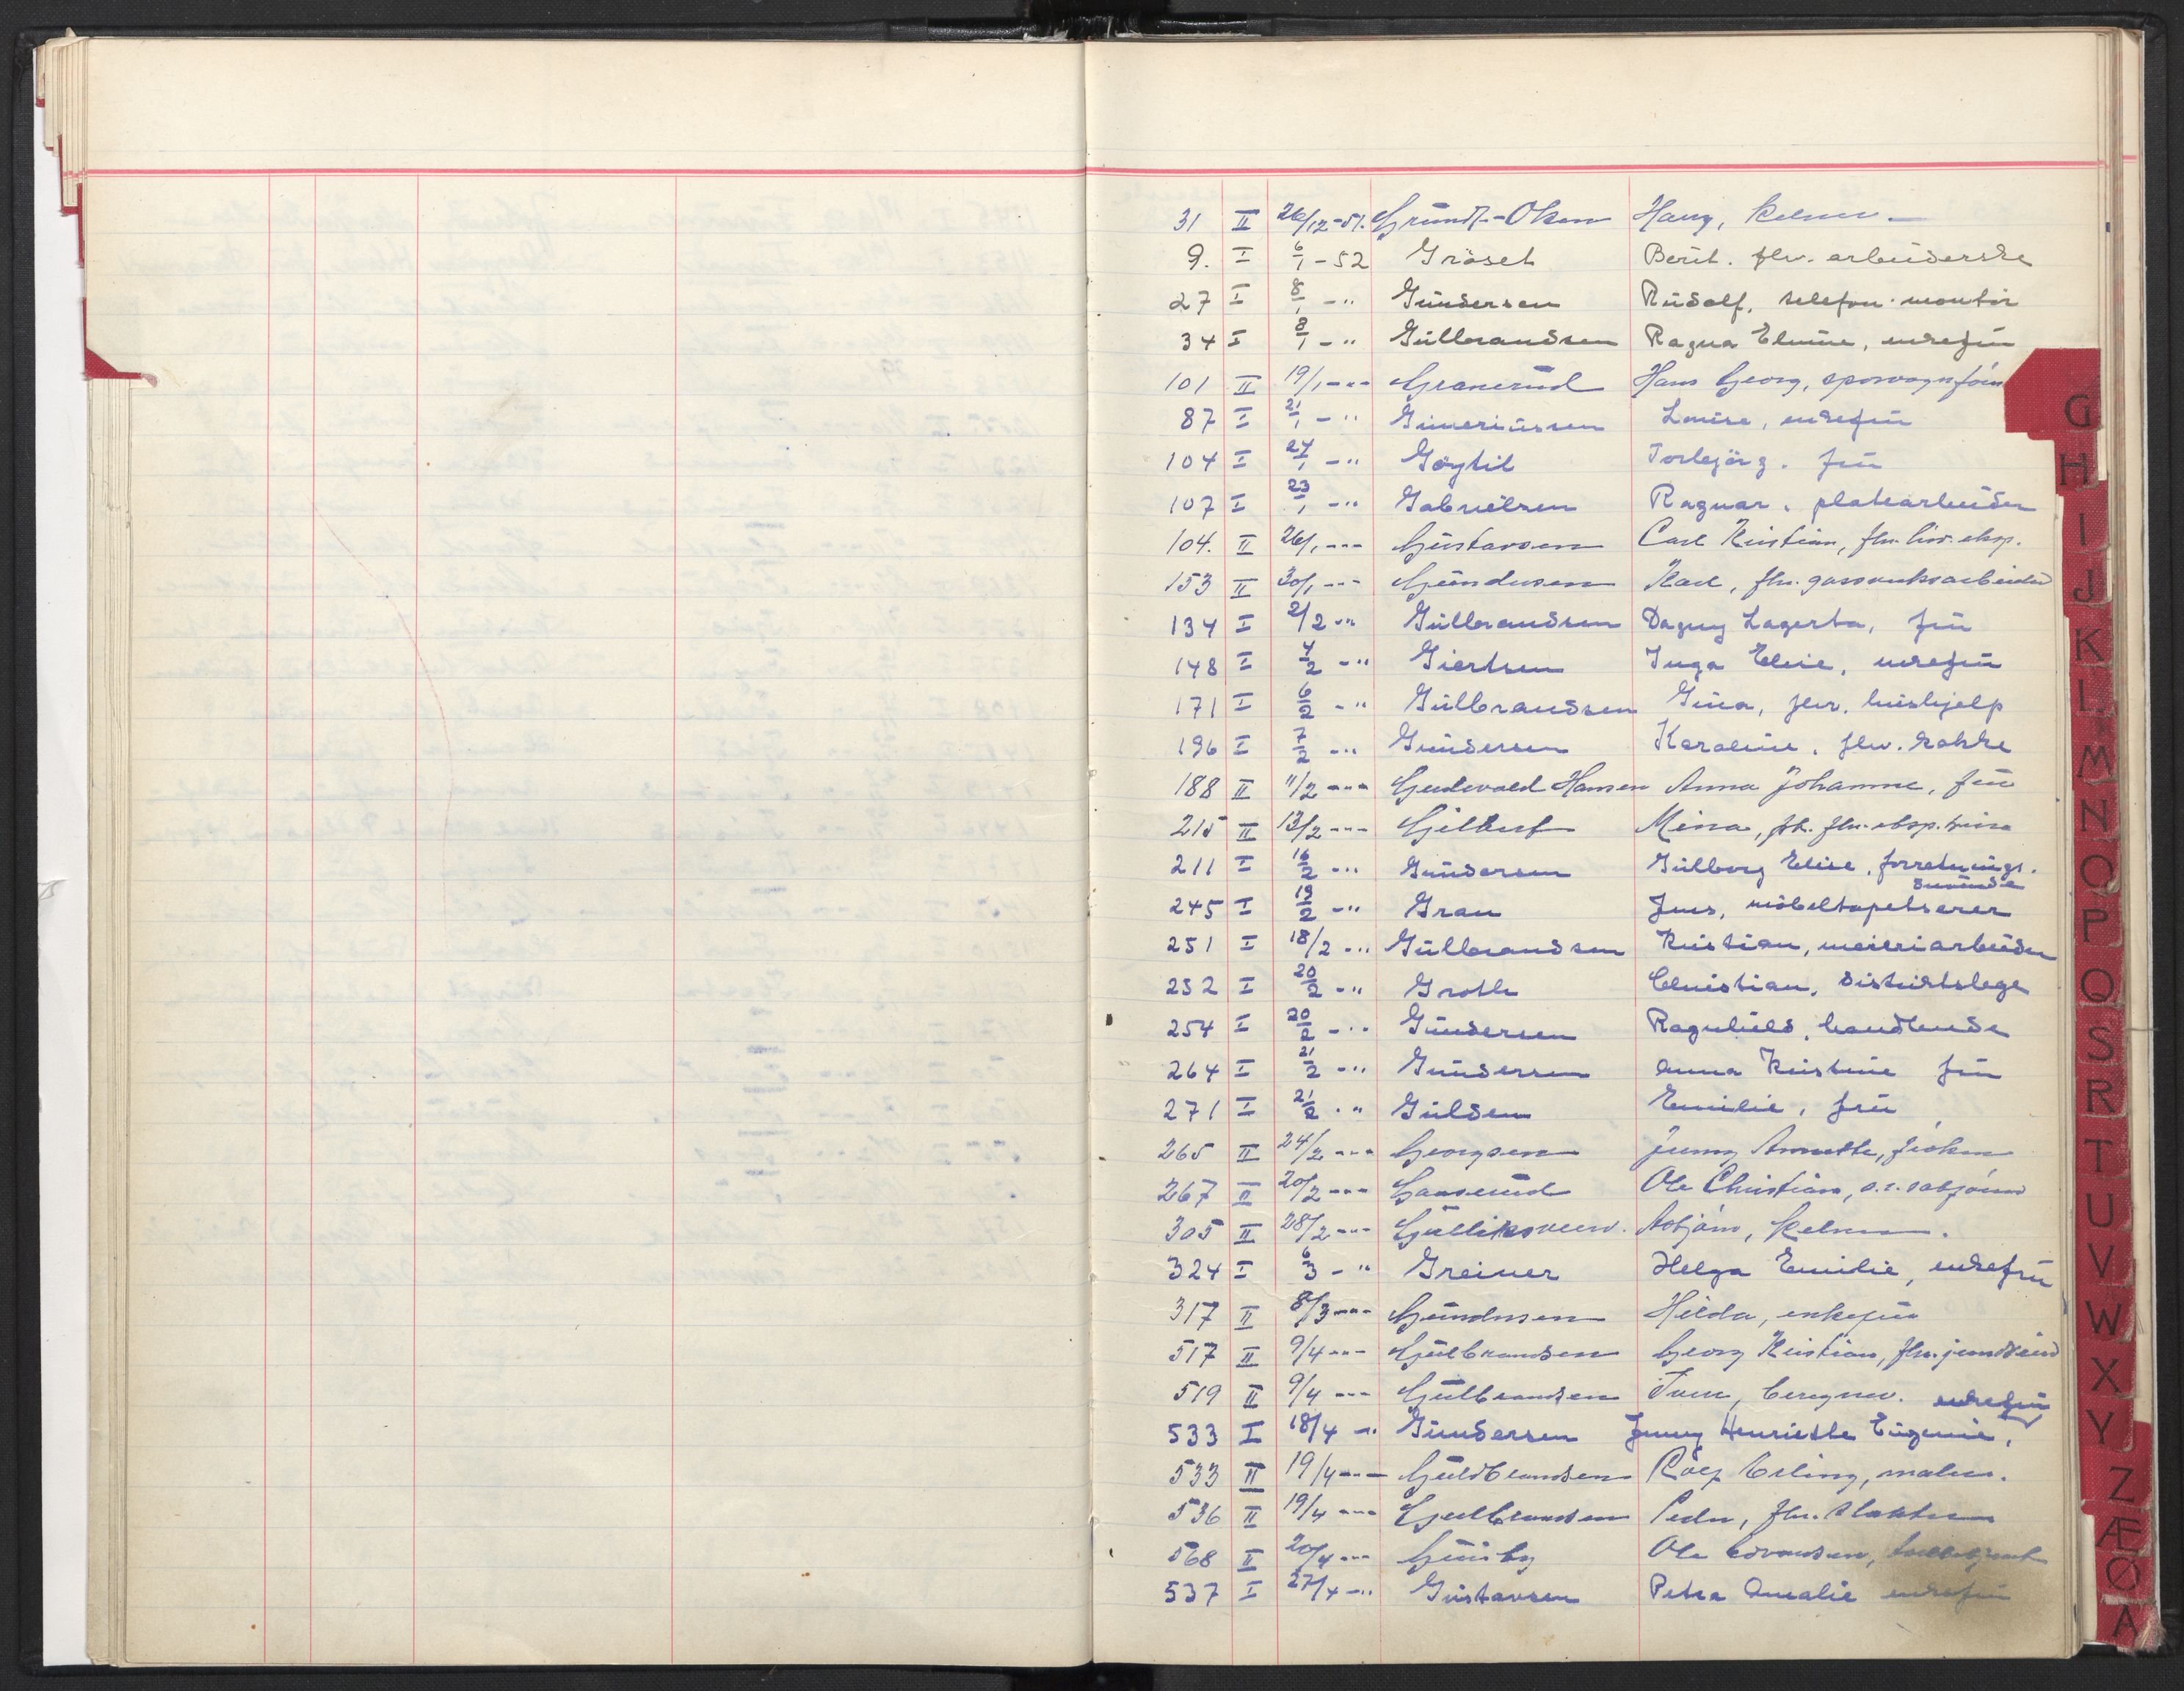 31 II 26/12-51. Grundt-Olsen Harry, kelner
9. I 6/1-52 Gråseth Berit. fhv. arbeiderske
27 I 8/1 -" Gundersen Rudolf, telefon montør
34 I 8/1 -" Gulbrandsen Ragna Elvine, enkefru
101 II 19/1 -"- Granerud Hans Georg, sporvognsfører
87 I 21/1 -" Gimeriussen Louise, enkefru
104 I 24/1 -" Gøytil Torbjørg. fru
107 I 23/1 -" Gabrielsen Ragnar, platearbeider
104. II 26/1 -"- Gustavsen Carl Kristian, fhv.
153 II 30/1 -"- Gundersen Karl, fhv. gassverksarbeider
134 I 2/2 -" Gulbrandsen Dagny Lagerta, fru
148 I 4/2 -" Giertsen Inga Elvie, enkefru
171 I 6/2 -" Gulbrandsen Gina, fhv. hushjelp
196 I 7/2 -" Gundersen Karoline, fhv. kokke
188 II 11/2 -"- Gudevold Hansen Anna Johanne, fru
215 II 13/2 -"- Gilbert Mina, fhv. eksp.
211 I 16/2 -" Gundersen Gulborg Elise, forretnings.
drivende
245 I 19/2 -" Gran Jens, møbeltapetserer
251 I 18/2 -" Gulbrandsen Kristian, meieriarbeider
252 I 20/2 -" Groth Christian, distriktslege
254 I 20/2 -" Gundersen Ragnhild, handlende
264 I 21/2 -" Gundersen Anna Kristine fru
271 I 21/2 -" Gulsen Emilie, fru
265 II 24/2 -"- Georgsen Jenny Annette, frøken
267 II 20/2 -"- Gaaserud Ole Christian,
305 II 28/2 -"- Asbjørn, kelner.
324 I 6/3 -" Greiner Helga Emilie, enkefru
317 II 8/3 -"- Gundersen Hilda, enkefru
517 II 9/4 -"- Gulbrandsen Georg Kristian, fhv.
519 II 9/4 -"- Gulbrandsen
enkefru
533 I 18/4 -" Gundersen Jenny Henriette Eugenie,
533 II 19/4 -"- Guldbrandsen Rolf Erling, maler.
536 II 19/4 -"- Gulbrandsen Peder, fhv. slakter
568 II 20/4 -"- Gunby Ole
537 I 27/4 -" Gustavsen Petra Amalie enkefru
G
H
I
J
K
L
M
N
O
P
Q
S
R
T
U
V
W
X
Y
Z
Æ
Ø
A